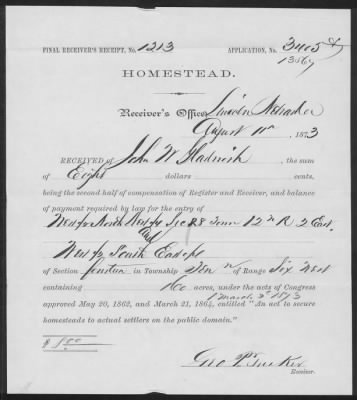 FINAL RECEIVER'S RECEIPT, No. 1213 APPLICATION, No. 3405
13567
HOMESTEAD.
Receiver's Office, Lincoln Nebraska
August 11th 1873
RECEIVED of John W. Gladwish, the sum
of Eight dollars cents,
being the second half of compensation of Register and Receiver, and balance
of payment required by law for the entry of
West ½ North West ¼ Sec 28 Town 12 N R 2 East
West ½ South East ¼
of Section in Township Ten N of Range Six West
containing 160 acres, under the acts of Congress
approved May 20, 1862, and March 21, 1864, entitled "An act to secure
homesteads to actual settlers on the public domain."
$ 8.00
Geo P. Tucker
Receiver.